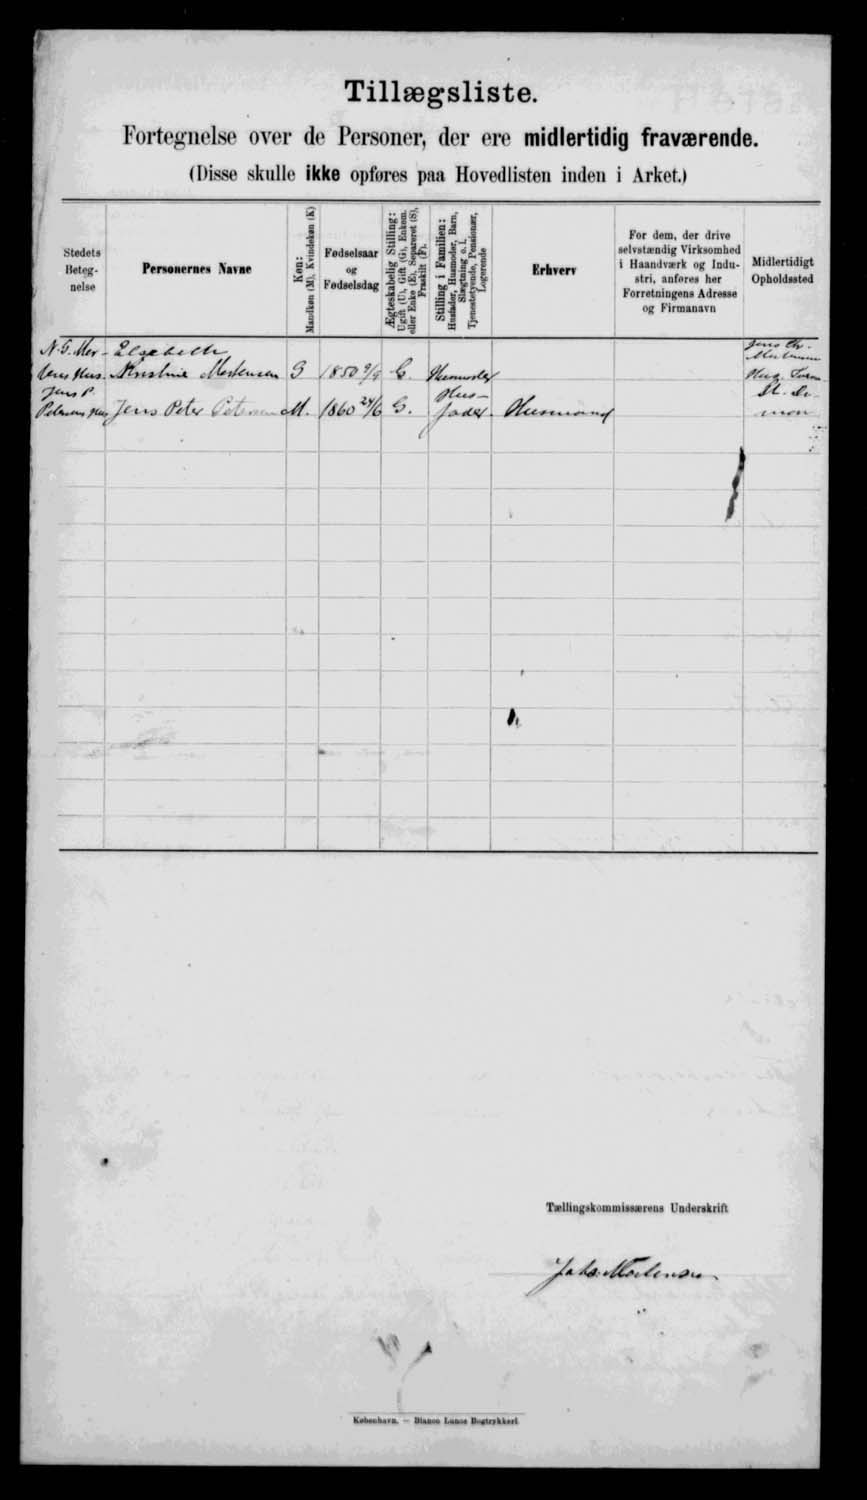 Tillægsliste.
Fortegnelse over de Personer, der ere midlertidig fraværende.
(Disse skulle ikke opføres paa Hovedlisten inden i Arket.)
Stedets Betegnelse
Personernes Navne
Køn: Mandkøn (M), Kvindekøn (K)
Fødselsaar og Fødselsdag
Ægteskabelig Stilling: Ugift (U), Gift (G), Enkem. eller Enke (E), Separeret (S), Fraskilt (F).
Stilling i Familien: Husfader, Husmoder, Barn, Slægtning o. l. Tjenestetyende, Pensionær, Logerende
Erhverv
For dem, der drive selvstændig Virksomhed i Haandværk og Industri, anføres her Forretningens Adresse og Firmanavn
Midlertidigt Opholdssted
Elsebeth
Kirstine Mortensen 1850 2/9 G. Husmoder
Jens P.
Petersens Hus Jens Peter Petersen M. 1860 24/6 G. Husfader. Husmand
Tællingskommissærens Underskrift
Mortensen
København. — Bianco Lunos Bogtrykkeri.